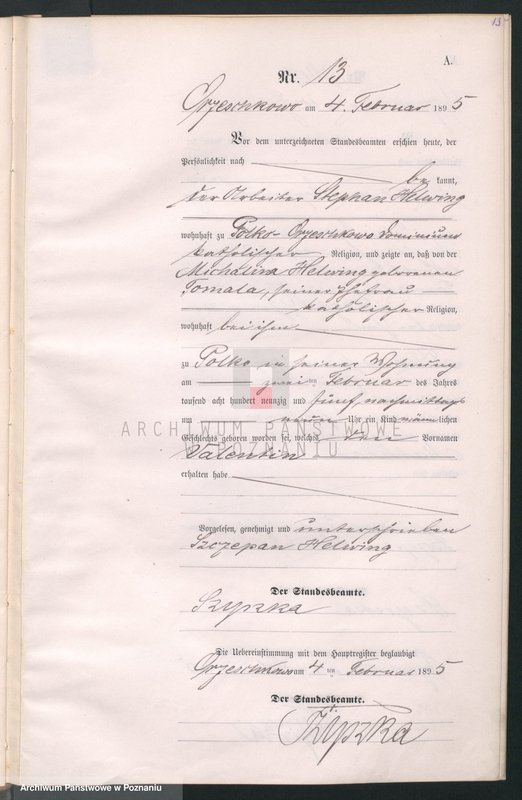 13
A.
Nr. 13
Orzeschkowo am 4. Februar 1895
Vor dem unterzeichneten Standesbeamten erschien heute, der
Persönlichkeit nach
be kannt,
der Arbeiter Stephan Helwing
wohnhaft zu Polko-Orzeschkowo Dominium
katholischer Religion, und zeigte an, daß von der
Michalina Helwing geborenen
Tomala, seiner Ehefrau
katholischer Religion,
wohnhaft bei ihm
zu Polko in seiner Wohnung
am zwei ten Februar des Jahres
tausend acht hundert neunzig und fünf nachmittags
um neun Uhr ein Kind männ lichen
Geschlechts geboren worden sei, welches den Vornamen
Valentin
erhalten habe
ARCHIWUM PAŃSTWOWE
W POZNANIU
Vorgelesen, genehmigt und unterschrieben
Szczepan Helwing
Der Standesbeamte.
Die Uebereinstimmung mit dem Hauptregister beglaubigt
Orzeschkowo am 4 ten Februar 1895
Der Standesbeamte.
Archiwum Państwowe w Poznaniu